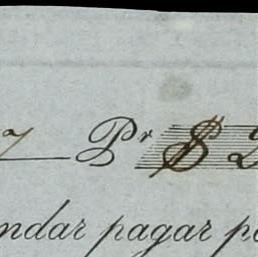 7 Pr $ 2
ndar pagar p